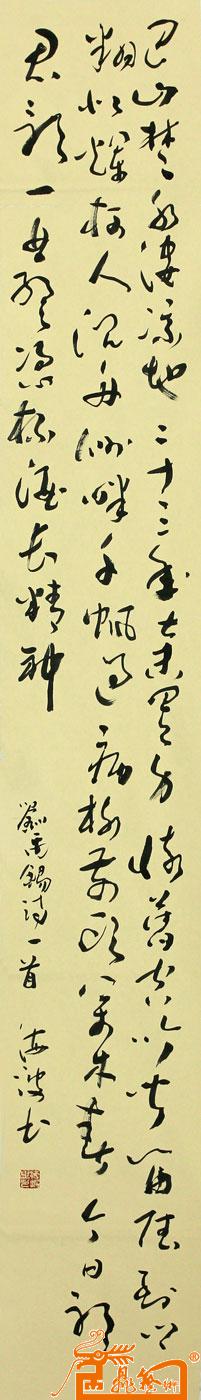 巴山楚水凄凉地二十三年弃置身怀旧空吟闻笛赋到乡
翻似烂柯人沉舟侧畔千帆过病树前头万木春今日听
君歌一曲暂凭杯酒长精神
刘禹锡诗一首 海波书